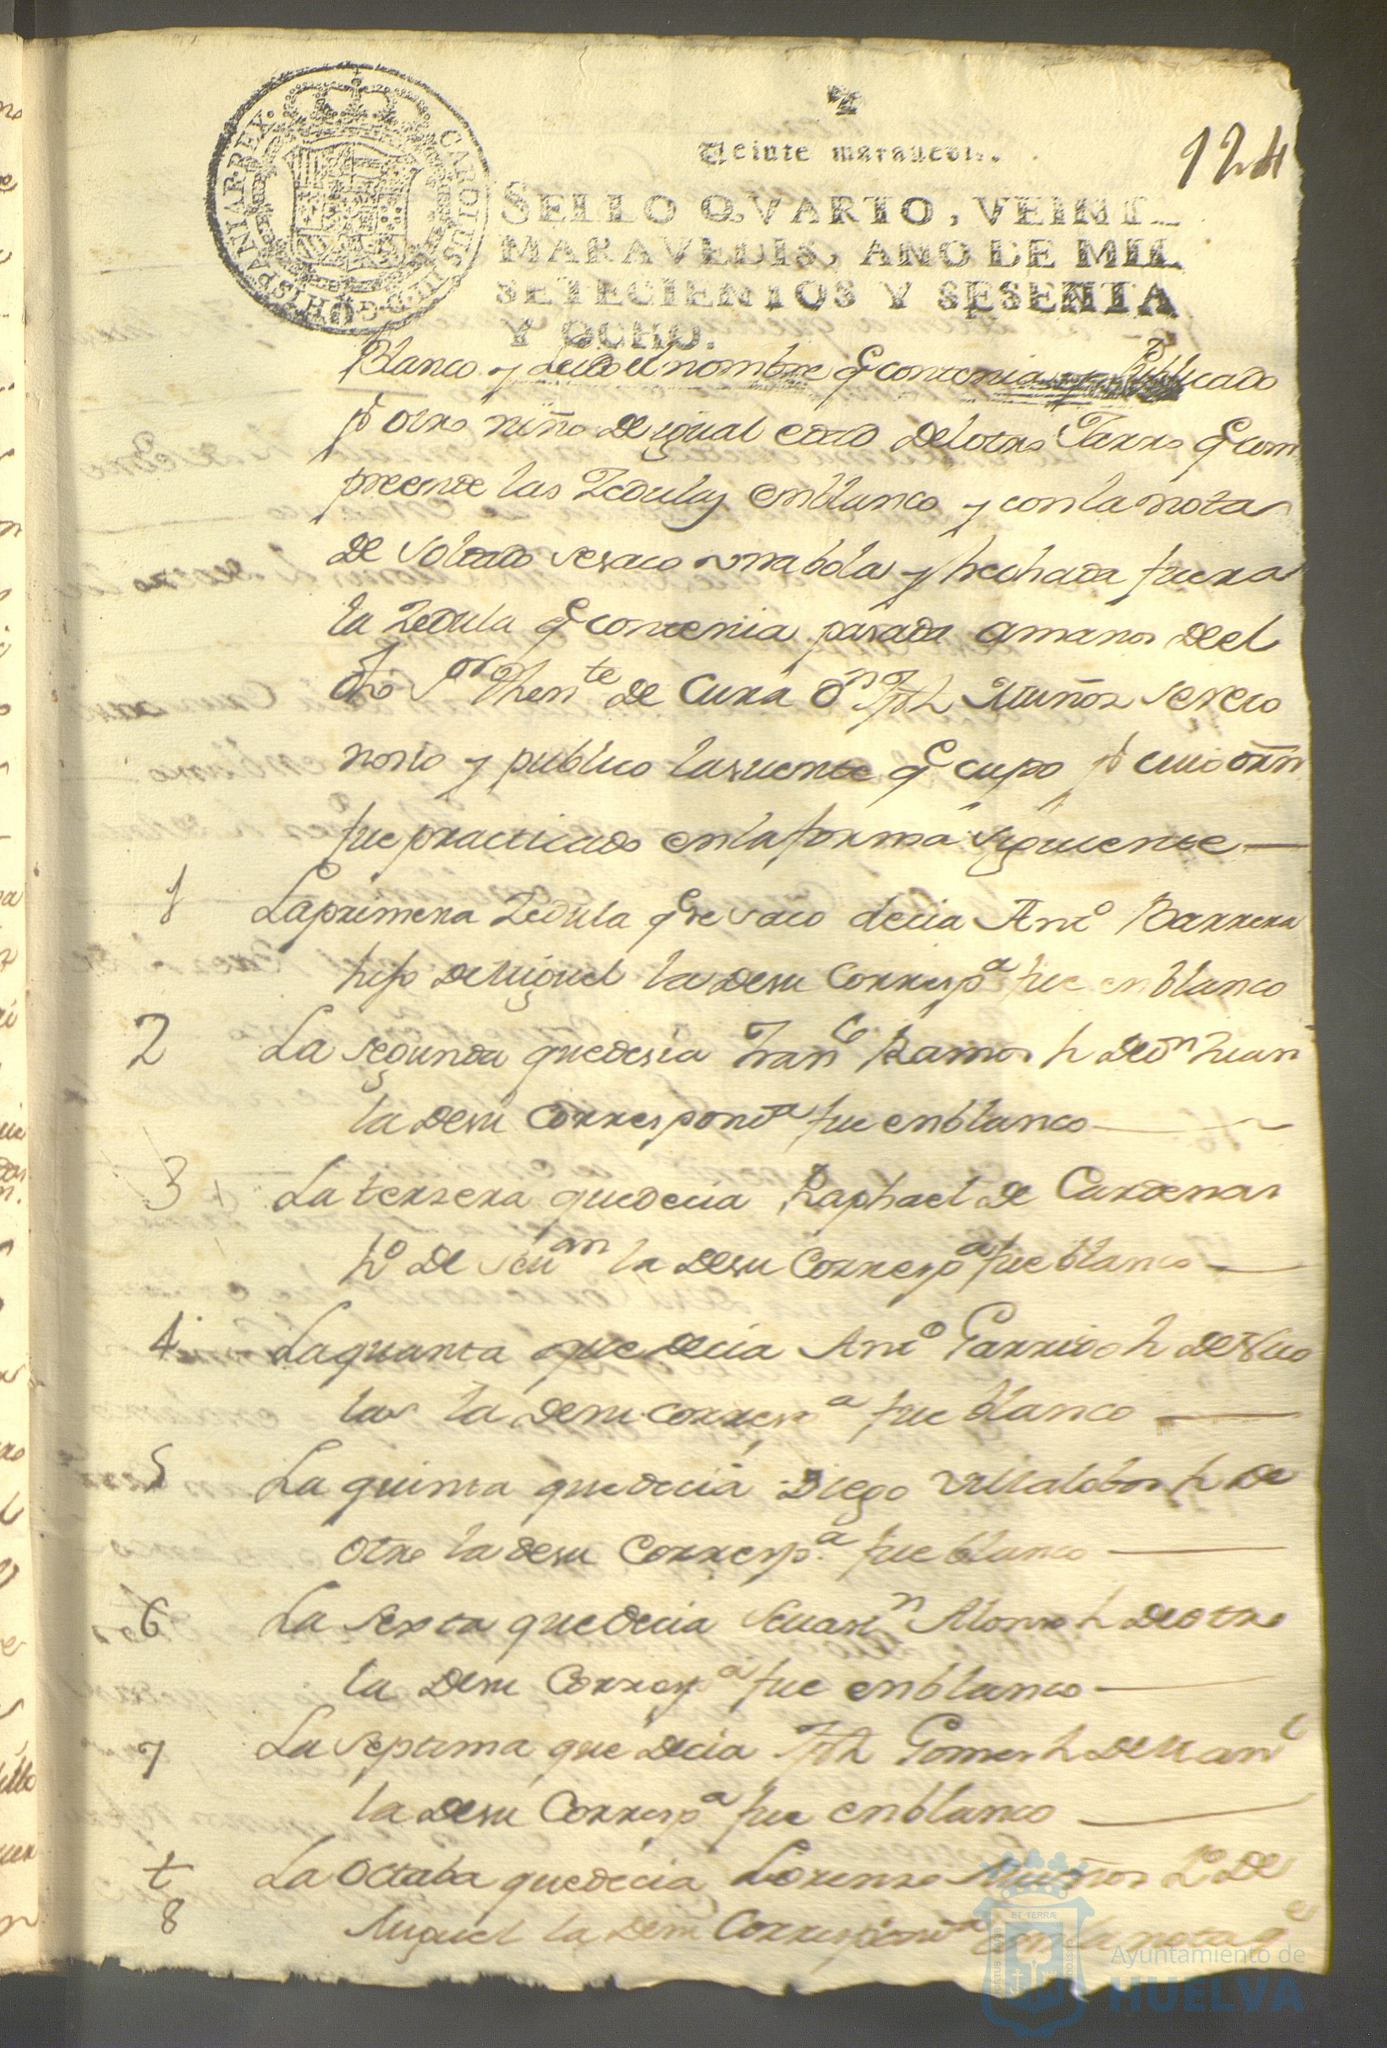 124
Veinte maravedis.
SELLO QVARTO, VEINT
MARAVEDIS, AÑO DE MIL
SETECIENTOS Y SESENTA
Y OCHO.
CAROLUS III D G HISPANIAR REX
Blanco y leido el nombre q contenia y Publicado
pr otro niño de igual edad de lotro Jarro q com
preende las Zedulas en blanco y con la nota
de soldado se saco una bola y hechada fuera
la Zedula q contenia pasada a manos de el
dho Sor Thente de Cura Dn Jph Muños se reco
nosio y publico la suerte q cupo pr cuio orn
fue practicado en la forma siguiente
1 La primera Zedula q se saco decia Anto Barrera
hijo de Miguel la de su Correspa fue en blanco
2 La segunda que desia Franco Ramos h de Dn Juan
la de su Corresponda fue en blanco
3 La tersera que decia Raphael de Cardenas
ho de la de su Correspa fue blanco
4 La quarta que decia Anto Garrido h de Nico
las la de su Correspa fue blanco
5 La quinta que decia Diego Villalobos h de
otro la de su Correspa fue blanco
6 La sexta que decia Alonso h de otro
la de su Correspa fue en blanco
7 La septima que decia Jph Gomes h de Manl
la de su Correspa fue en blanco
t
8 La octaba que decia Lorenso Muños ho de
Miguel la de su Corresponda con la nota qe
ET TERRÆ
Ayuntamiento de
HUELVA